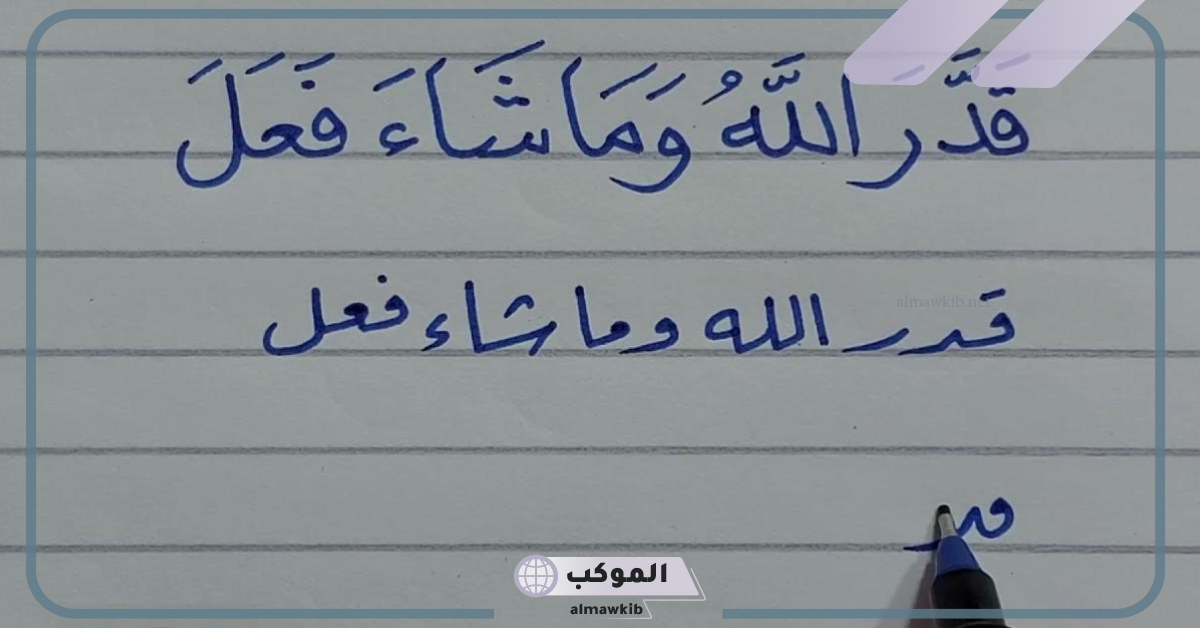 قَدَّرَ اللَّهُ وَمَا شَاءَ فَعَلَ
almawkib.net
قدر الله وما شاء فعل
الموكب
almawkib